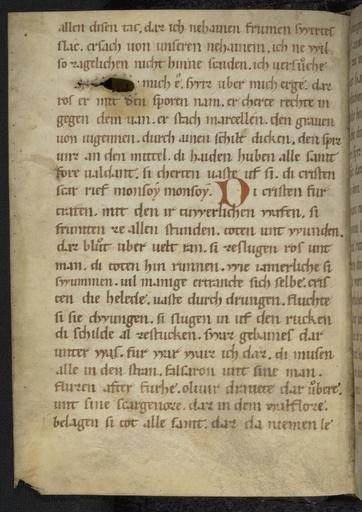 allen disen tac. daz ich nehainen frumen swertes
slac. ersach uon unseren nehainem. ich ne wil
so zagelichen nicht hinne scaiden. ich uersůche
mich ê. swz uber mich ergê. daz
ros er mit den sporen nam. er cherte rechte in
gegen dem uan. er stach marcellen. den grauen
uon uigennen. durch ainen schilt dicken. den spiz
unz an den mittel. di haiden huben alle samt
fore ualdant. si cherten uaste uf si. di cristen
scar rief monsoy monsoy. Di cristen fur
traten. mit den ir tuwerlichen wafen. si
frumten ze allen stunden. toten unt wunden.
daz blůt uber uelt ran. si reslugen ros unt
man. di toten hin runnen. wie iamerliche si
swummen. uil manige ertrancte sich selbe. cris
ten die helede. uaste durch drungen. fluchte
si sie chwungen. si slugen in uf den rucken
di schilde al zestucken. swaz gehaines dar
unter was. fur war waiz ich daz. di musen
alle in den stran. falsaron unt sine man.
flurzen after furhe. oliuir draucte dar ůbere.
unt sine scargenoze. daz in dem wal flore.
belagen si tot alle samt. daz da niemen le